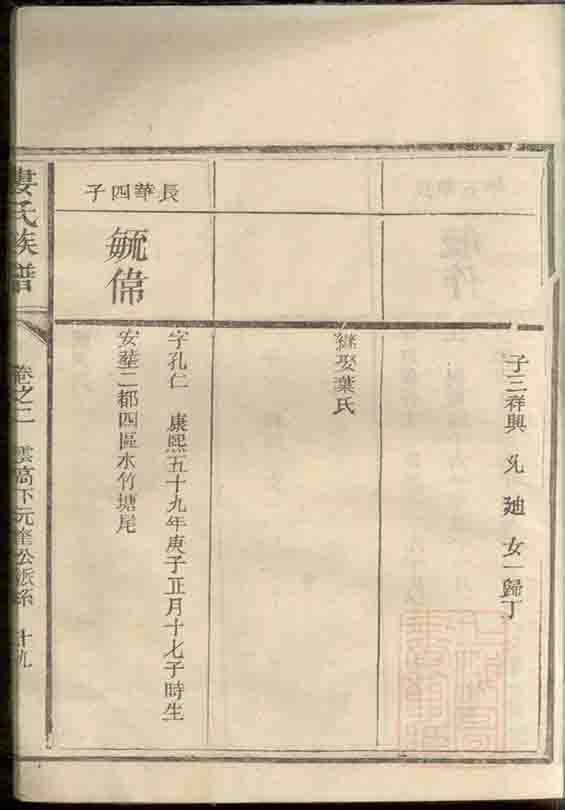 子三祥興 廴 廸 女一歸丁
繼娶葉氏
長華四子
毓偉
字孔仁 康熙五十九年庚子正月十七子時生
安葬二都四區水竹塘尾
婁氏族譜
卷之二 雲高下元奎公派系 十九